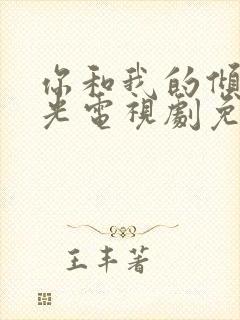 你和我的傾
光電視劇免
王丰著